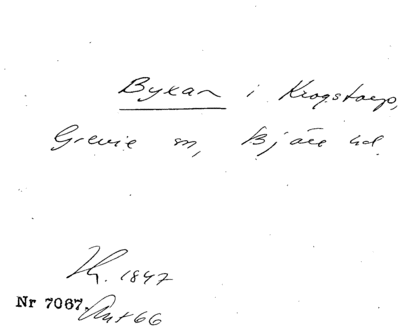 Byxan i Krogstorp,
Grevie sn, Bjäre hd.
Th. 1847
Nr 7067. Ant 66